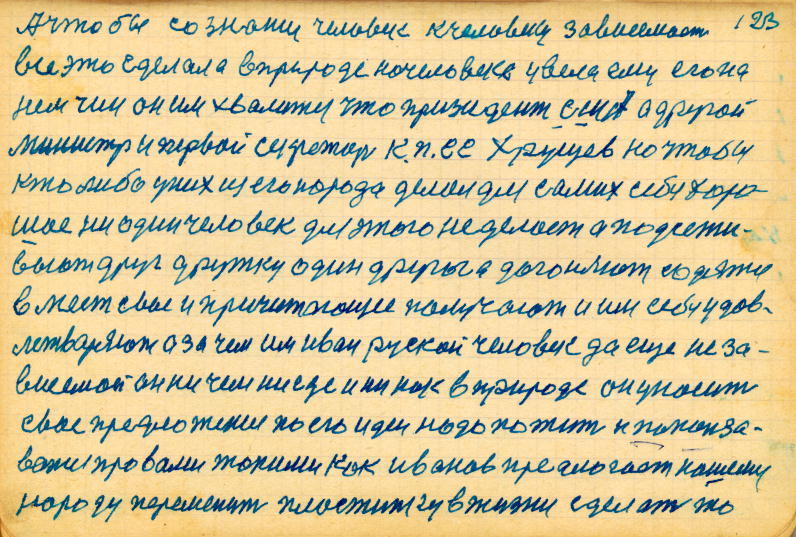 А чтобы сознани человек к человеку зависемост 123
все это сделала в природе но человека увела ему его на
нем чим оним хвалится что призидент сша а другой
министр и первой секретар К.П.СС Хрущев но чтобы
кто либо у них из его народа делал для самих себя хоро-
шое ни один человек для этого не делает а подсежи-
вают друг дружку один другога догоняют содяжи
в месте свое и причитающее получают и им себя удов-
летваряют а зачем им иван руской человек да еще не за-
висемой он ни чем нигде и ни как в природе он уносит
свое предложение по его идеи надо пожит и
важи провами такими как иванов предлогает нашему
народу переменит в жизни сделат то